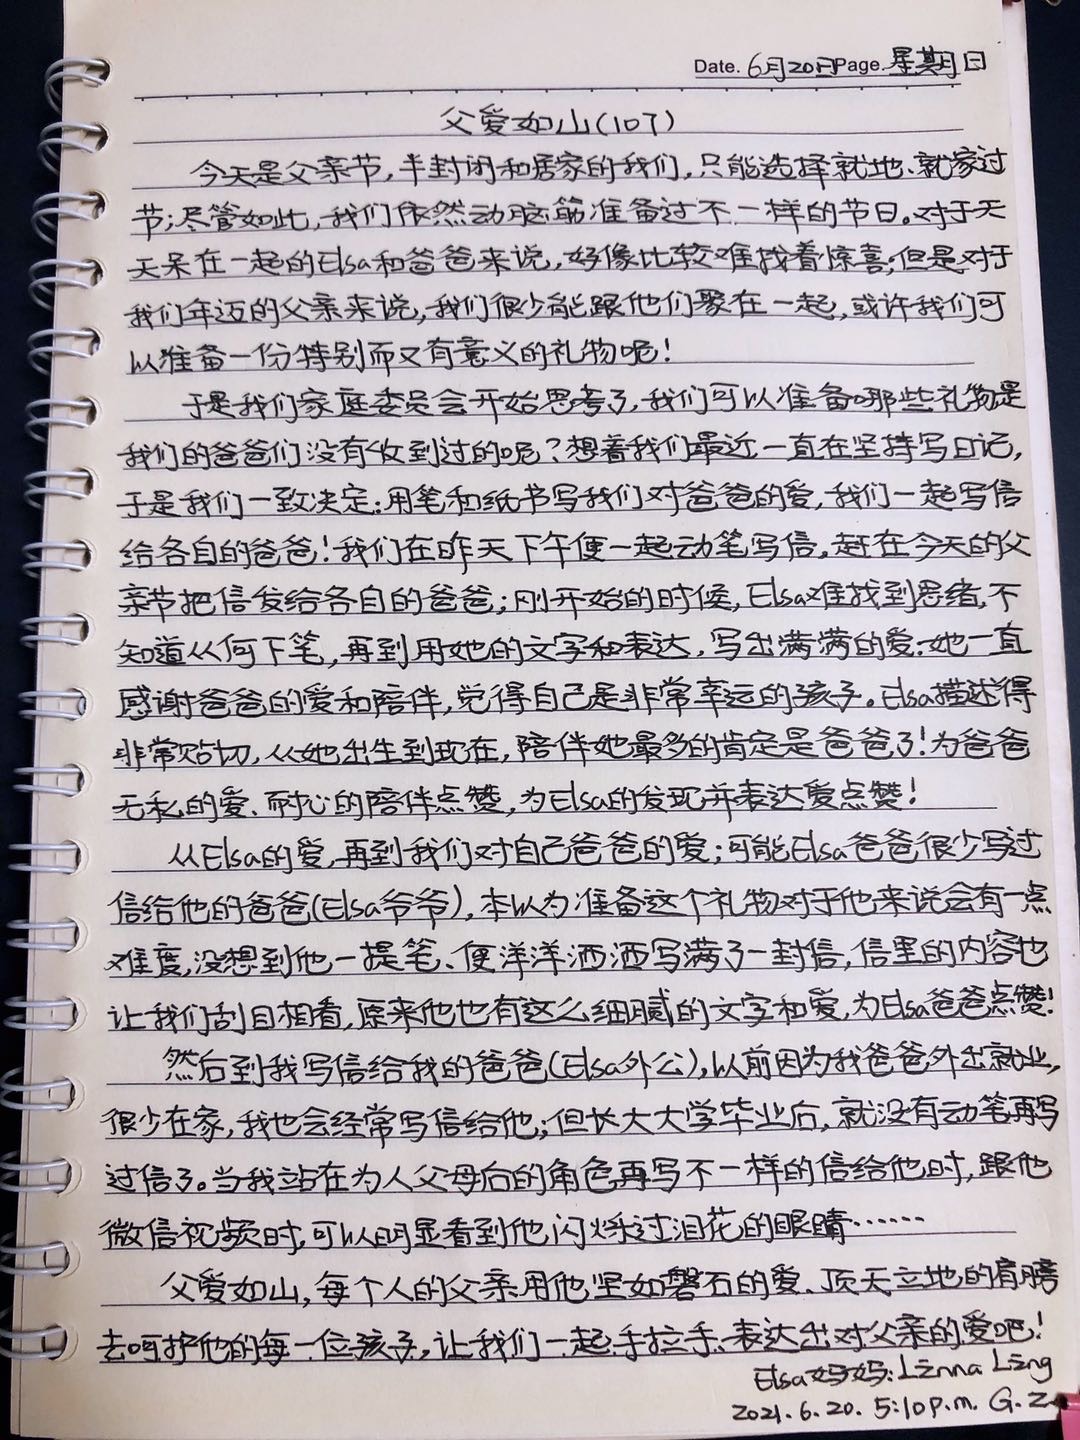 Date. 6月20日Page. 星期日
父爱如山(107)
今天是父亲节,半封闭和居家的我们,只能选择就地、就家过
节;尽管如此,我们依然动脑筋准备过不一样的节日。对于天
天呆在一起的Elsa和爸爸来说,好像比较难找着惊喜;但是对于
我们年迈的父亲来说,我们很少能跟他们聚在一起,或许我们可
以准备一份特别而又有意义的礼物呢!
于是我们家庭委员会开始思考了,我们可以准备哪些礼物是
我们的爸爸们没有收到过的呢?想着我们最近一直在坚持写日记,
于是我们一致决定:用笔和纸书写我们对爸爸的爱,我们一起写信
给各自的爸爸!我们在昨天下午便一起动笔写信,赶在今天的父
亲节把信发给各自的爸爸;刚开始的时候,Elsa难找到思绪,不
知道从何下笔,再到用她的文字和表达,写出满满的爱:她一直
感谢爸爸的爱和陪伴,觉得自己是非常幸运的孩子。Elsa描述得
非常贴切,从她出生到现在,陪伴她最多的肯定是爸爸了!为爸爸
无私的爱、耐心的陪伴点赞,为Elsa的发现并表达爱点赞!
从Elsa的爱,再到我们对自己爸爸的爱;可能Elsa爸爸很少写过
信给他的爸爸(Elsa爷爷),本以为准备这个礼物对于他来说会有一点
难度,没想到他一提笔、便洋洋洒洒写满了一封信,信里的内容也
让我们刮目相看,原来他也有这么细腻的文字和爱,为Elsa爸爸点赞!
然后到我写信给我的爸爸(Elsa外公),以前因为我爸爸外出就业,
很少在家,我也会经常写信给他;但长大大学毕业后,就没有动笔再写
过信了。当我站在为人父母后的角色再写不一样的信给他时,跟他
微信视频时,可以明显看到他闪烁过泪花的眼睛……
父爱如山,每个人的父亲用他坚如磐石的爱、顶天立地的肩膀
去呵护他的每一位孩子,让我们一起手拉手、表达出对父亲的爱吧!
Elsa妈妈:Linna Ling
2021.6.20. 5:10p.m. G.Z.